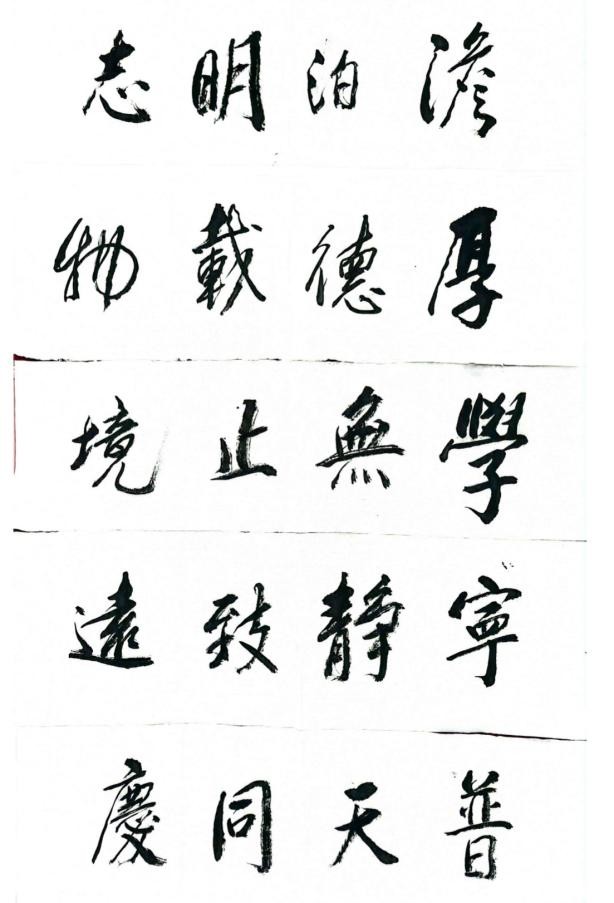 澹泊明志
厚德載物
學無止境
寧靜致遠
普天同慶